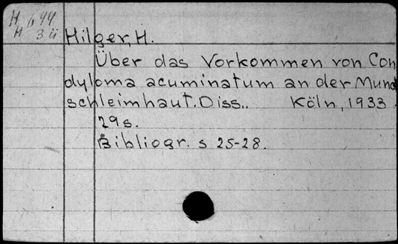 H 11,44
H 3 ü
Hilger, H.
Über das Vorkommen von Con
dyloma acuminatum an der Mund
schleimhaut. Diss.. Köln, 1933.
29s.
Bibliogr. s 25-28.